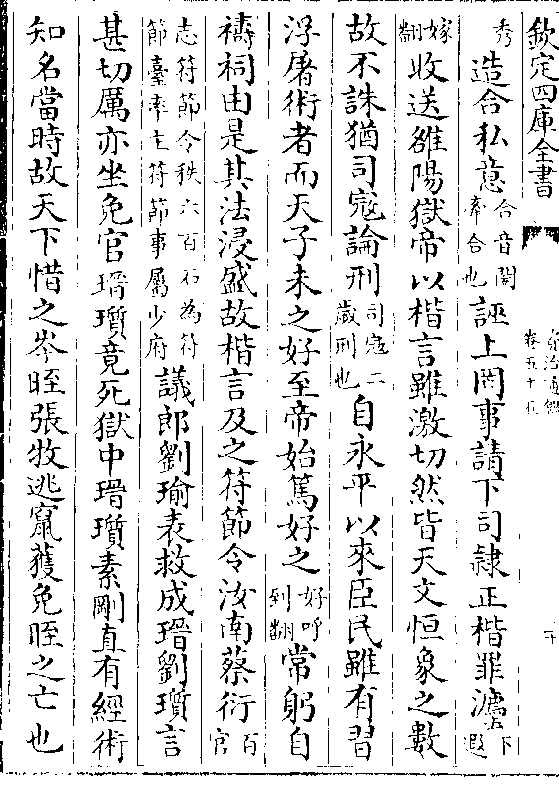 欽定四庫全書
資治通鑑
卷五十五
秀造合私意合音閤牽合也誣上罔事請下司隸正楷罪灋下遐
嫁翻收送雒陽獄帝以楷言雖激切然皆天文恒象之數
故不誅猶司寇論刑司寇二歲刑也自永平以來臣民雖有習
浮屠術者而天子未之好至帝始篤好之好呼到翻常躬自
禱祠由是其法浸盛故楷言及之符節令汝南蔡衍百官
志符節令秩六百石為符節臺率主符節事屬少府議郎劉瑜表救成瑨劉瓆言
甚切厲亦坐免官瑨瓆竟死獄中瑨瓆素剛直有經術
知名當時故天下惜之岑晊張牧逃竄獲免晊之亡也